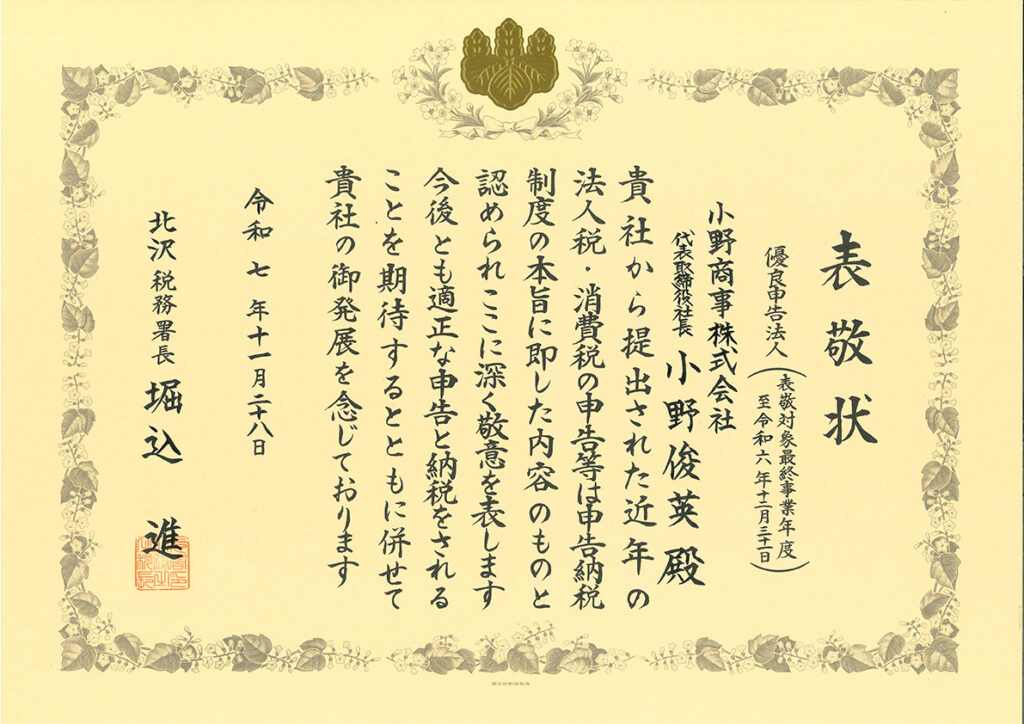 表敬状
優良申告法人(表敬対象最終事業年度
至令和六年十二月三十一日)
小野商事株式会社
代表取締役社長 小野俊英 殿
貴社から提出された近年の
法人税・消費税の申告等は申告納税
制度の本旨に即した内容のものと
認められここに深く敬意を表します
今後とも適正な申告と納税をされる
ことを期待するとともに併せて
貴社の御発展を念じております
令和七年十一月二十八日
北沢税務署長 堀込 進